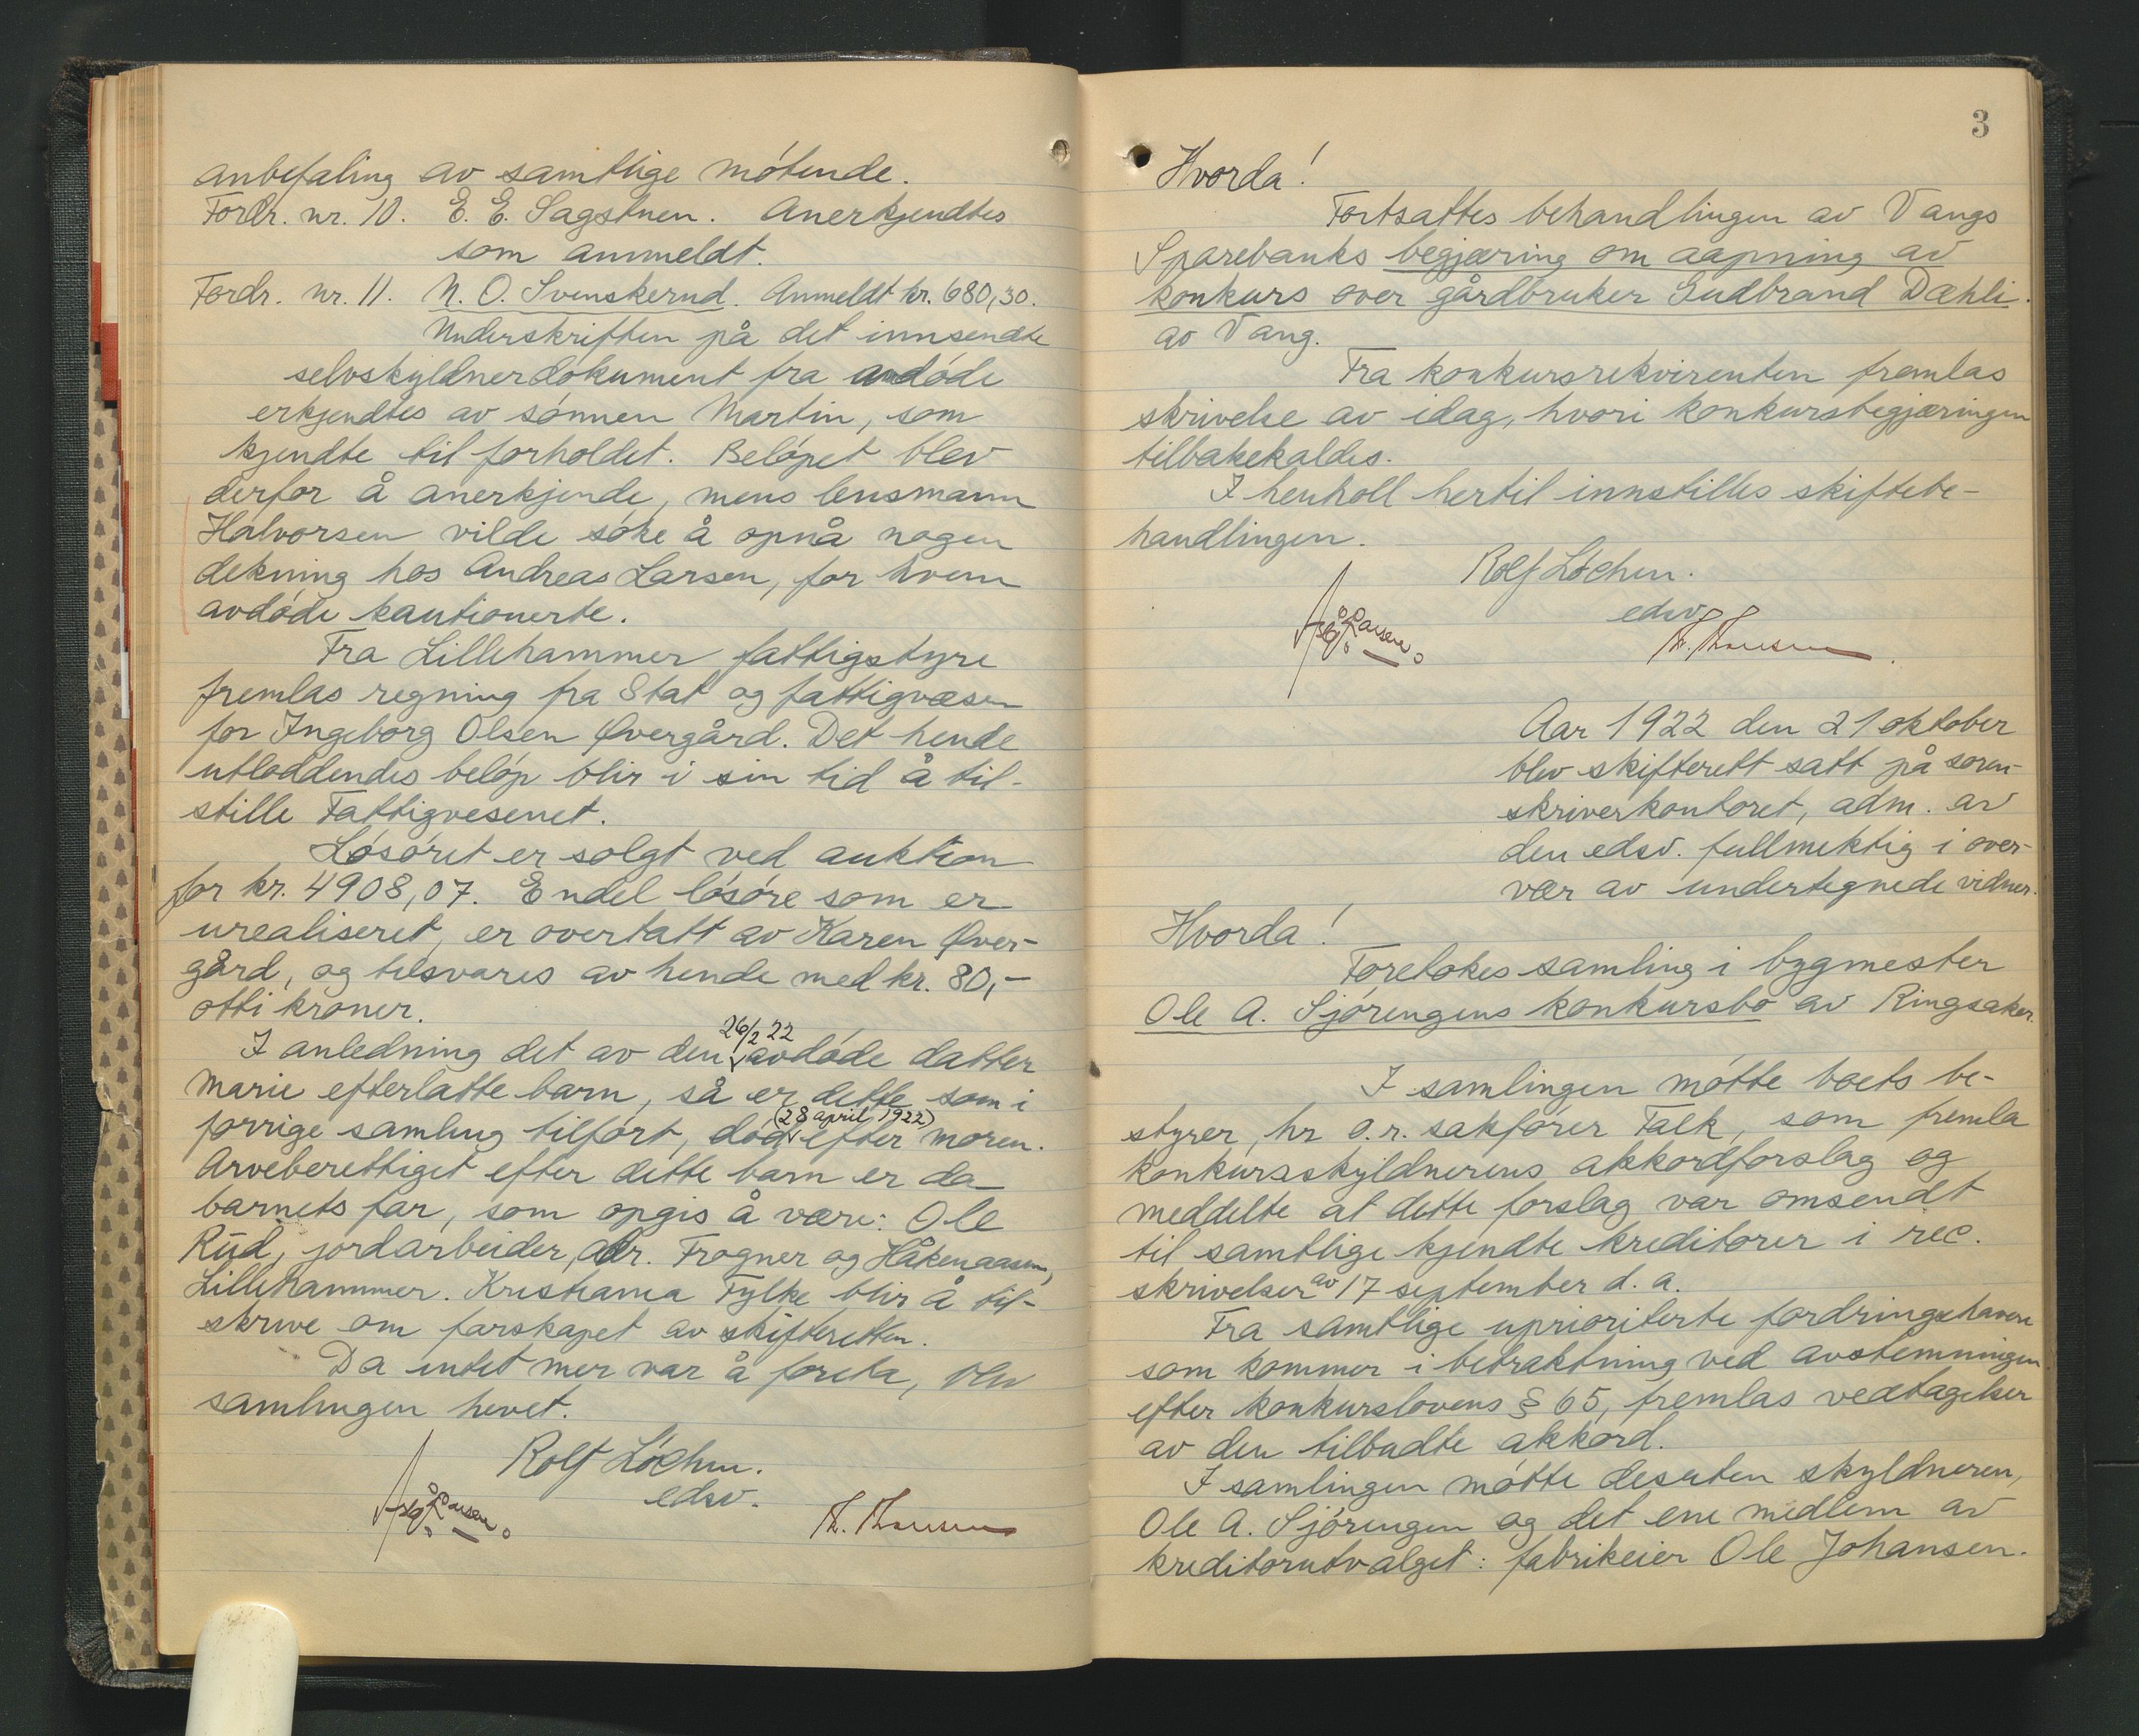 anbefaling av samtlige møtende.
Fordr. nr. 10. E. E. Sagstuen. Anerkjendtes
som anmeldt.
Fordr. nr. 11. N. O. Svenskerud. Anmeldt kr. 680,30.
Underskriften på det innsendte
selvskyldnerdokument fra avdøde
erkjendtes av sønnen Martin, som
kjendte til forholdet. Beløpet blev
derfor å anerkjende, mens lensmann
Halvorsen vilde søke å opnå nogen
dekning hos Andreas Larsen, for hvem
avdøde kautionerte.
Fra Lillehammer fattigstyre
fremlas regning fra Stat og fattigvæsen
for Ingeborg Olsen Øvergård. Det hende
utloddendes beløp blir i sin tid å til-
stille Fattigvesenet.
Løsøret er solgt ved auktion
for kr. 4908,07. Endel løsøre som er
urealiseret, er overtatt av Karen Øver-
gård, og tilsvares av hende med kr. 80,-
otti kroner.
26/2 22
I anledning det av den avdøde datter
Marie efterlatte barn, så er dette som i
(28 april 1922)
forrige samling tilført, død efter moren.
Arveberettiget efter dette barn er da
barnets far, som opgis å være: Ole
Rud, jordarbeider, adr. Frogner og Håkenaasen,
Lillehammer. Kristiania Fylke blir å til-
skrive om farskapet av skifteretten.
Da intet mer var å foreta, blev
samlingen hevet.
Rolf Løchen.
edsv.
Th. Thoresen
3
Hvorda!
Fortsattes behandlingen av Vangs
Sparebanks begjæring om aapning av
konkurs over gårdbruker Gudbrand Dæhli.
av Vang.
Fra konkursrekvirenten fremlas
skrivelse av idag, hvori konkursbegjæringen
tilbakekaldes.
I henholl hertil innstilles skiftebe-
handlingen.
Rolf Løchen.
edsv
Th. Thoresen
Aar 1922 den 21 oktober
blev skifterett satt på soren-
skriverkontoret, adm. av
den edsv. fullmektig i over-
vær av undertegnede vidner.
Hvorda!
Foretokes samling i bygmester
Ole A. Sjørengens konkursbo av Ringsaker.
I samlingen møtte boets be-
styrer, hr o.r. sakfører Falk, som fremla
konkursskyldnerens akkordforslag og
meddelte at dette forslag var omsendt
til samtlige kjendte kreditorer i rec.
skrivelser av 17 september d. a.
Fra samtlige uprioriterte fordringshavere
som kommer i betraktning ved avstemningen
efter konkurslovens § 65, fremlas vedtagelser
av den tilbudte akkord.
I samlingen møtte desuten skyldneren,
Ole A. Sjørengen og det ene medlem av
kreditorutvalget: fabrikeier Ole Johansen.